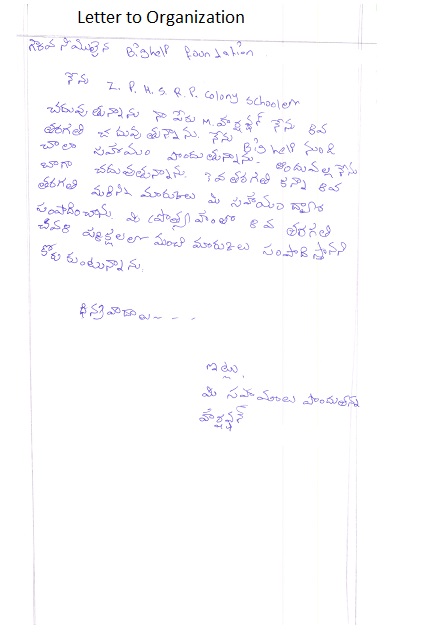 Letter to Organization
గౌరవనీయులైన Bighelp foundation.
నేను Z. P. H. S. R. P. Colony School లో
చదువుతున్నాను నా పేరు M. హర్షవర్ధన్ నేను 8వ
తరగతి చదువుతున్నాను. నేను Bighelp నుండి
చాలా సహాయం పొందుతున్నాను. అందువల్ల నేను
బాగా చదువుతున్నాను. 7వ తరగతి కన్నా 8వ
తరగతి మంచి మార్కులు మీ సహాయం ద్వారా
సంపాదించాను. మీ ప్రోత్సాహంతో 8వ తరగతి
చివరి పరీక్షలలో మంచి మార్కులు సంపాదిస్తానని
కోరుకుంటున్నాను.
ధన్యవాదాలు - - -
ఇట్లు,
మీ సహాయం పొందుతున్న
హర్షవర్ధన్